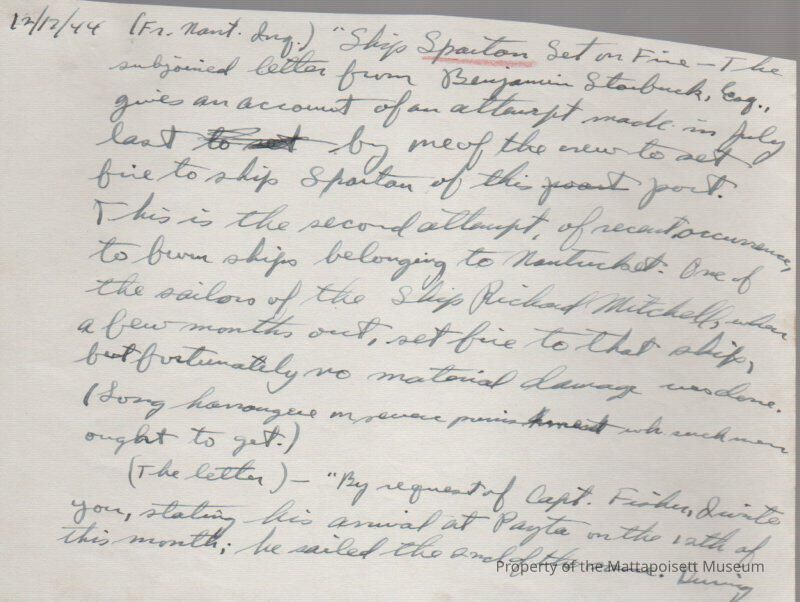 12/12/44 (Fr. Nant. Inq.) "Ship Spartan Set on Fire — The
subjoined letter from Benjamin Starbuck, Esq.,
gives an account of an attempt made in July
last to set by one of the crew to set
fire to ship Spartan of this port.
This is the second attempt, of recent occurrence,
to burn ships belonging to Nantucket. One of
the sailors of the Ship Richard Mitchell, when
a few months out, set fire to that ship,
but fortunately no material damage was done.
(Long harrangue on severe punishment wh such men
ought to get.)
(The letter) — "By request of Capt. Fisher, I write
you, stating his arrival at Payta on the 12th of
this month; he sailed the end of the same. During
Property of the Mattapoisett Museum